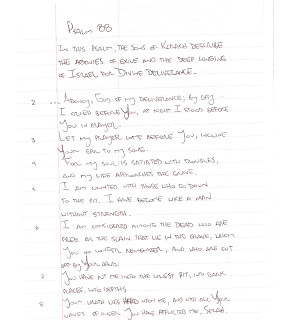 PSALM 88
IN THIS PSALM, THE SONS OF KORACH DESCRIBE
THE AGONIES OF EXILE AND THE DEEP LONGING
OF ISRAEL FOR DIVINE DELIVERANCE.
2 ADONOY, GOD OF MY DELIVERANCE; BY DAY
I CRIED BEFORE YOU, AT NIGHT I STOOD BEFORE
YOU IN PRAYER.
3 LET MY PRAYER COME BEFORE YOU, INCLINE
YOUR EAR TO MY SONG.
4 FOR MY SOUL IS SATIATED WITH TROUBLES,
AND MY LIFE APPROACHES THE GRAVE.
5 I AM COUNTED WITH THOSE WHO GO DOWN
TO THE PIT, I HAVE BECOME LIKE A MAN
WITHOUT STRENGTH.
6 I AM CONSIDERED AMONG THE DEAD WHO ARE
FREE AS THE SLAIN THAT LIE IN THE GRAVE, WHOM
YOU NO LONGER REMEMBER, AND WHO ARE CUT
OFF BY YOUR HAND.
7 YOU HAVE PUT ME INTO THE LOWEST PIT, INTO DARK
PLACES, INTO DEPTHS.
8 YOUR WRATH LIES HARD UPON ME, AND WITH ALL YOUR
WAVES OF ANGER YOU HAVE AFFLICTED ME, SELAH.